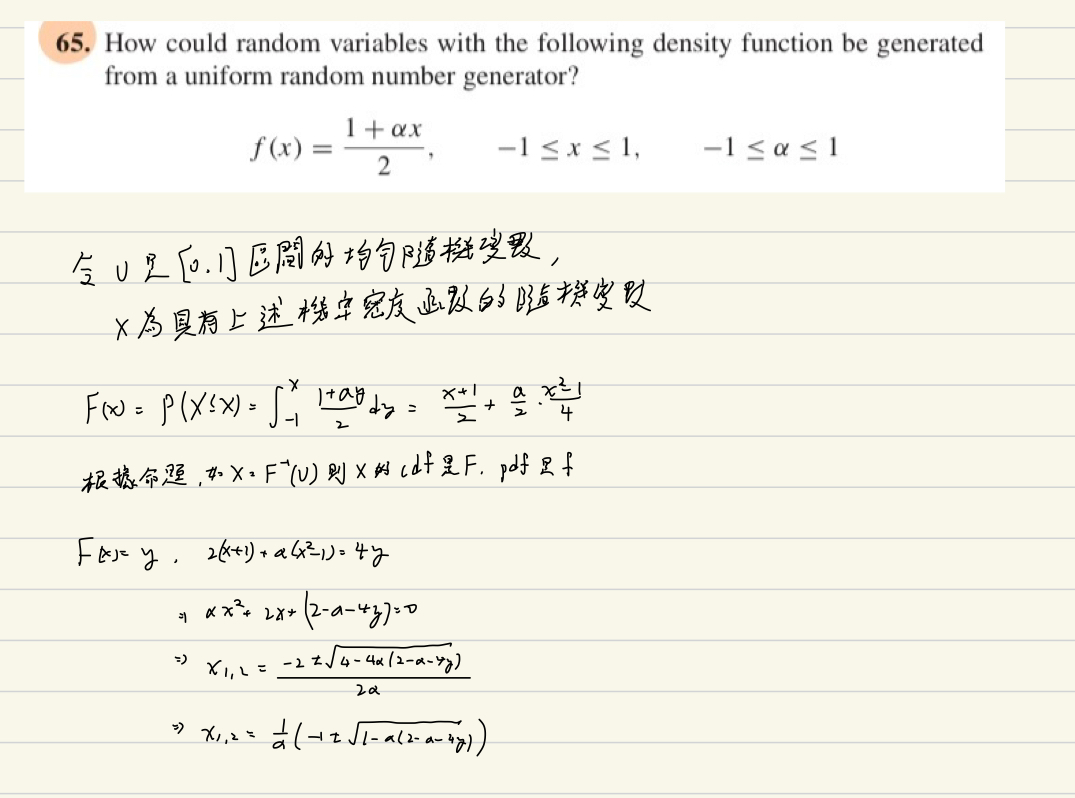 65. How could random variables with the following density function be generated
from a uniform random number generator?
f(x) = (1 + αx)/2, −1 ≤ x ≤ 1, −1 ≤ α ≤ 1
令 U 是 [0.1] 區間的均勻隨機變數,
X 為具有上述機率密度函數的隨機變數
F(x) = P(X≤x) = ∫_{-1}^{x} (1+ay)/2 dy = (x+1)/2 + a/2 · (x²-1)/4
根據命題,如 X = F⁻¹(U) 則 X 的 cdf 是 F. pdf 是 f
F(x) = y , 2(x+1) + a(x²-1) = 4y
⇒ αx² + 2x + (2-a-4y) = 0
⇒ x₁,₂ = (-2 ± √(4-4α(2-α-4y)))/2α
⇒ x₁,₂ = 1/α (-1 ± √(1-α(2-α-4y)))